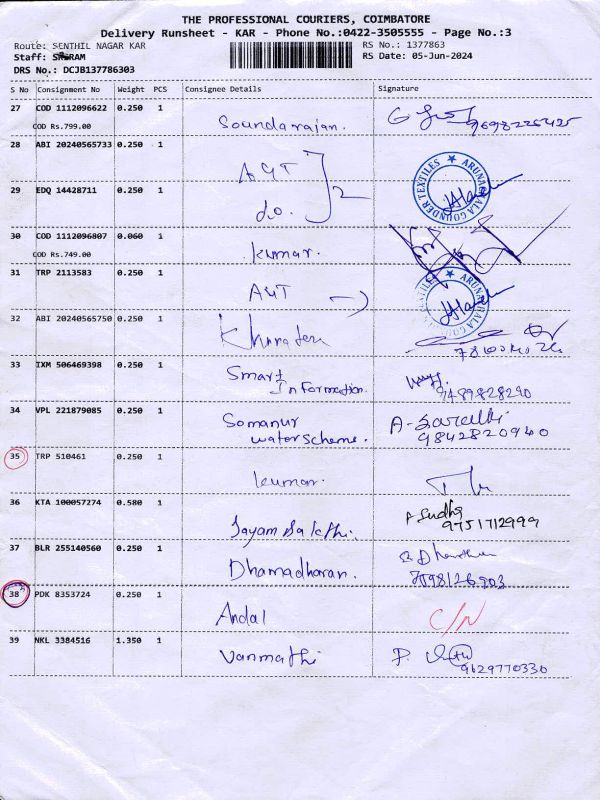 THE PROFESSIONAL COURIERS, COIMBATORE
Delivery Runsheet - KAR - Phone No.:0422-3505555 - Page No.:3
Route: SENTHIL NAGAR KAR RS No.: 1377863
Staff: SRIRAM RS Date: 05-Jun-2024
DRS No.: DCJB137786303
S No Consignment No Weight PCS Consignee Details Signature
27 COD 1112096622 0.250 1 Soundarajan. 9698226425
COD Rs.799.00
28 ABI 20240565733 0.250 1 AGT 2
ARUNACHALA GOUNDER TEXTILES
29 EDQ 14428711 0.250 1 do.
30 COD 1112096807 0.060 1 kumar.
COD Rs.749.00
31 TRP 2113583 0.250 1 AGT
ARUNACHALA GOUNDER TEXTILES
32 ABI 20240565750 0.250 1
33 IXM 506469398 0.250 1 Smart 9489828290
Information.
34 VPL 221879085 0.250 1 Somanur A-
water scheme. 9842820940
35 TRP 510461 0.250 1 kumar.
36 KTA 100057274 0.580 1 Jayam Sakthi. Sudha
9751712999
37 BLR 255140560 0.250 1 Dhamadharan.
38 PDK 8353724 0.250 1 Andal C/N
39 NKL 3384516 1.350 1 Vanmathi P.
9629770330